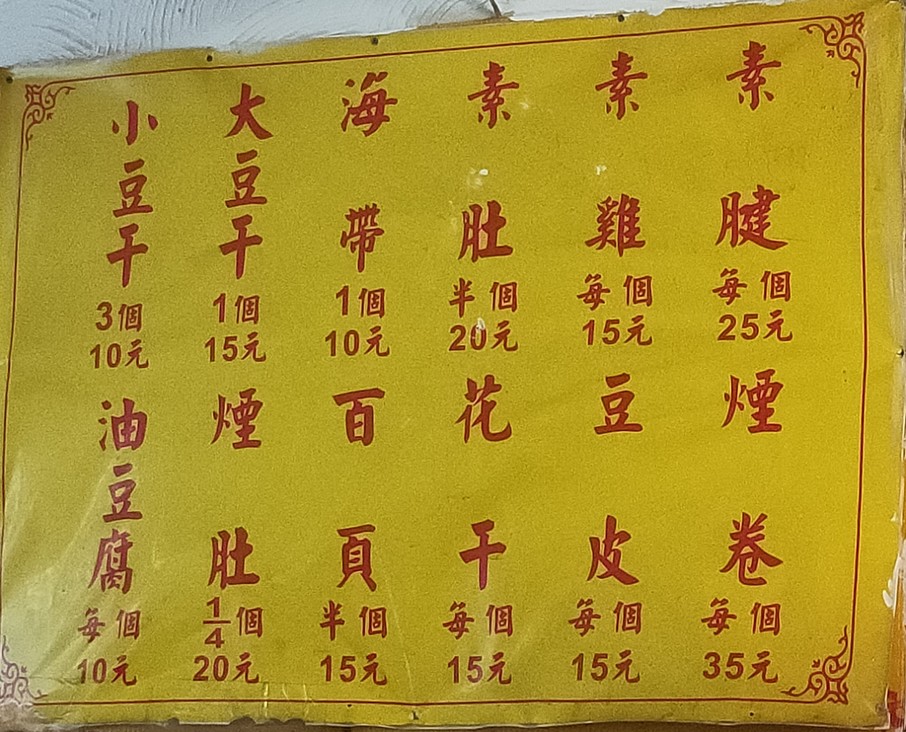 素腱
每個
25元
素雞
每個
15元
素肚
半個
20元
海帶
1個
10元
大豆干
1個
15元
小豆干
3個
10元
煙卷
每個
35元
豆皮
每個
15元
花干
每個
15元
百頁
半個
15元
煙肚
1/4個
20元
油豆腐
每個
10元